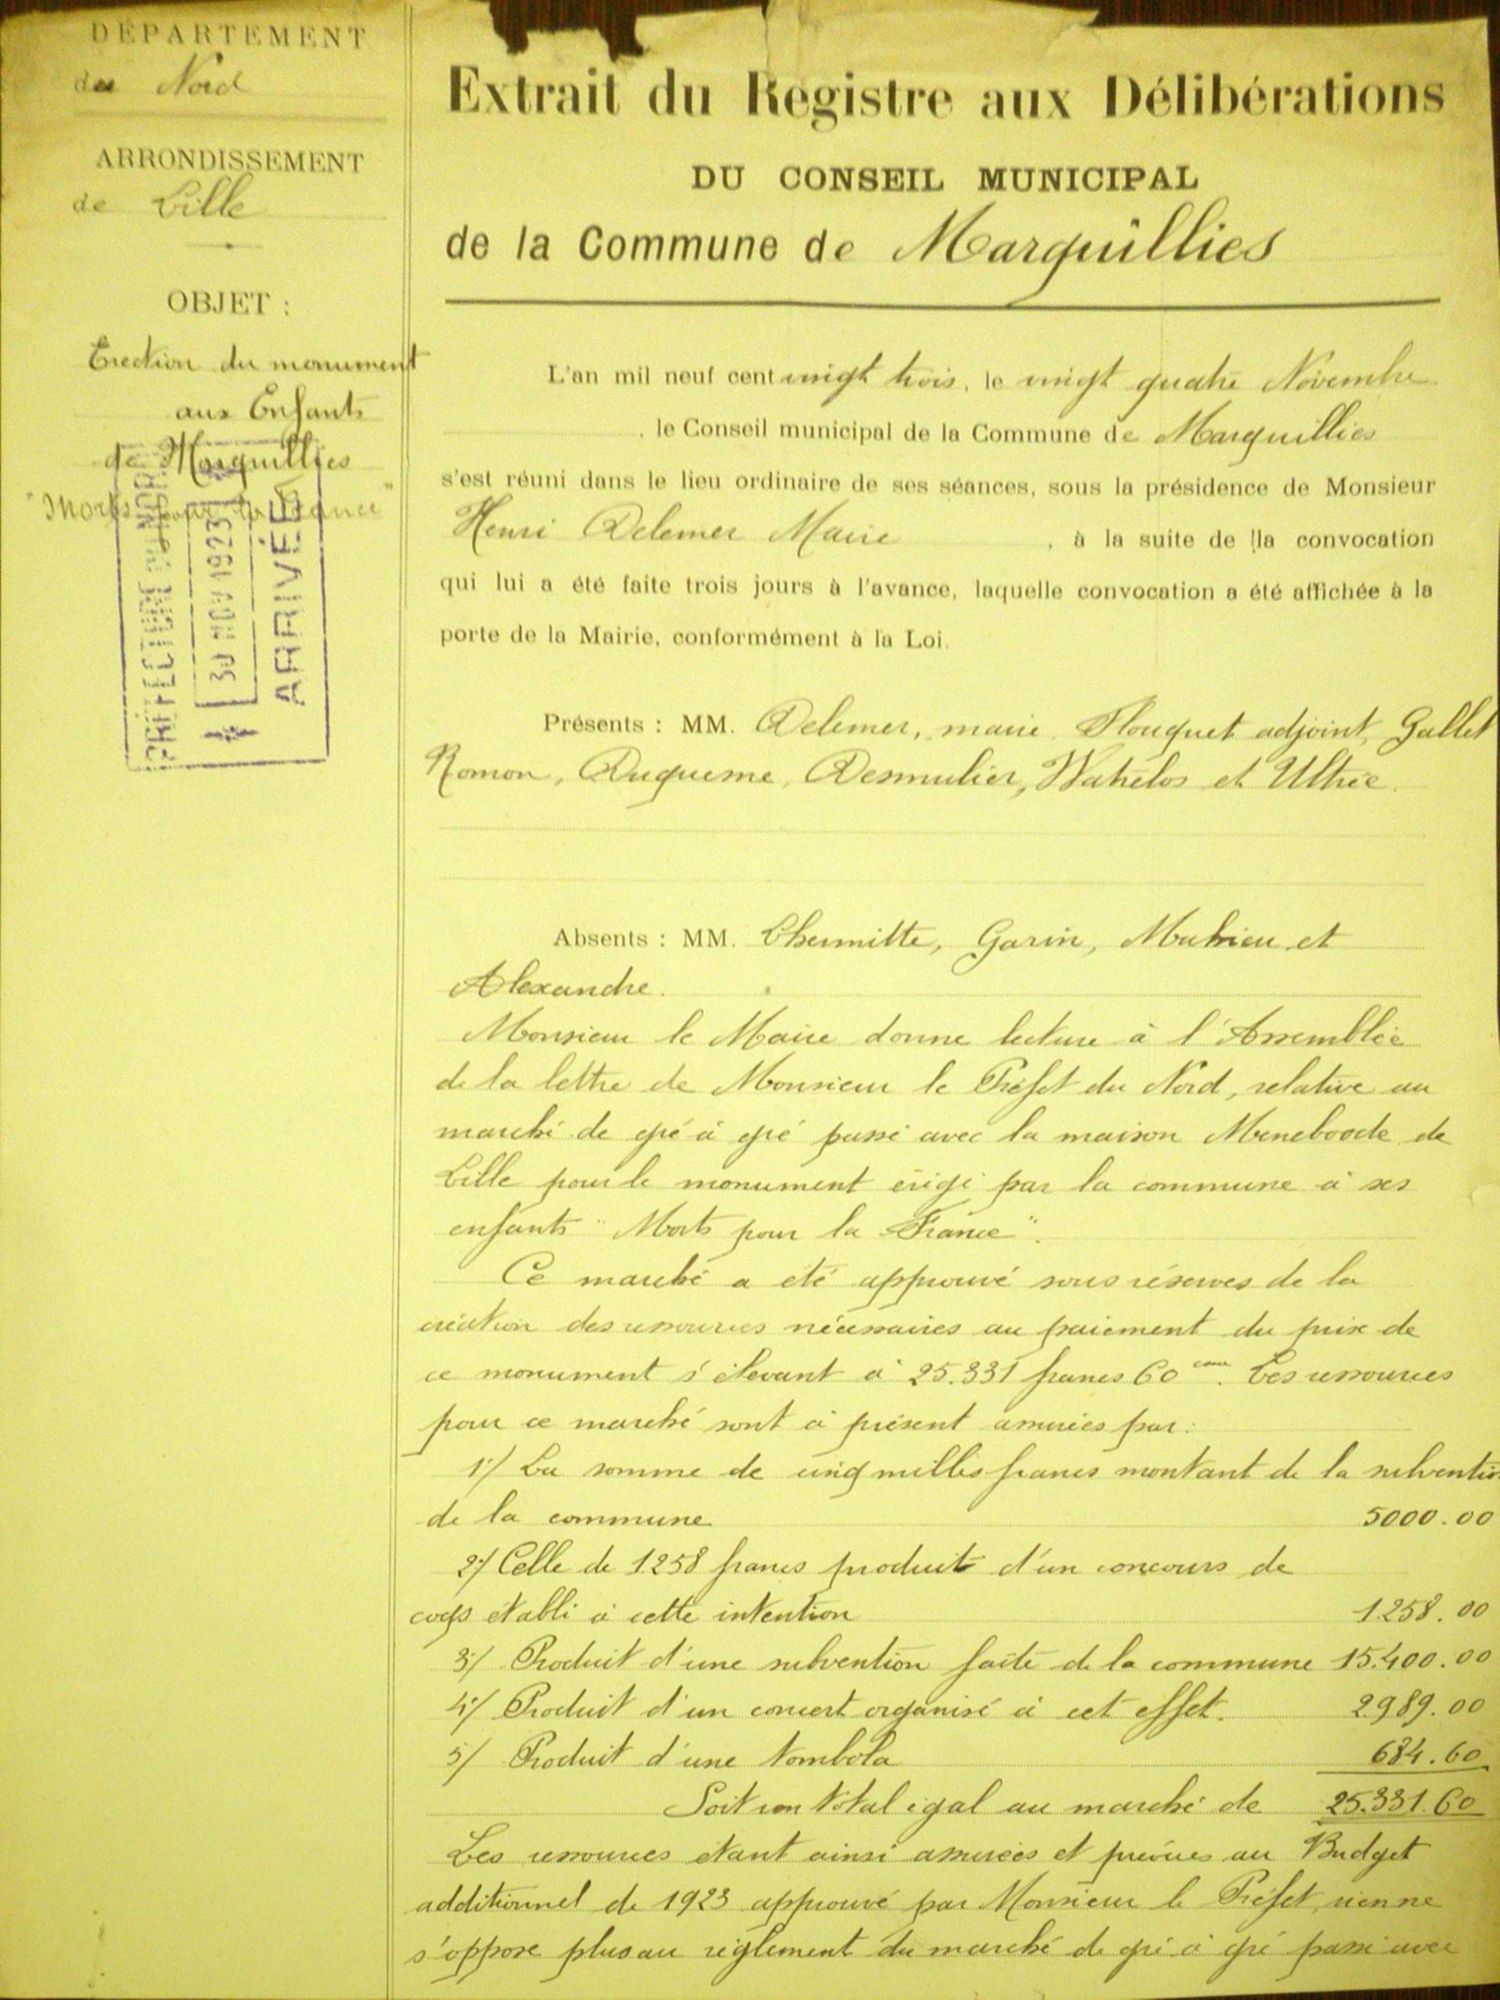 DÉPARTEMENT
du Nord
ARRONDISSEMENT
de Lille
OBJET :
Erection du monument
aux Enfants
de Marquillies
"Morts pour la France"
PRÉFECTURE DU NORD
30 NOV 1923
ARRIVÉE
Extrait du Registre aux Délibérations
DU CONSEIL MUNICIPAL
de la Commune de Marquillies
L'an mil neuf cent vingt trois, le vingt quatre Novembre
, le Conseil municipal de la Commune de Marquillies
s'est réuni dans le lieu ordinaire de ses séances, sous la présidence de Monsieur
Henri Delemer Maire , à la suite de la convocation
qui lui a été faite trois jours à l'avance, laquelle convocation a été affichée à la
porte de la Mairie, conformément à la Loi.
Présents : MM. Delemer, maire Plouquet adjoint, Gallet
Romon, Duquesne, Desmulier, Watrelos et Ultrée.
Absents : MM. Lhermitte, Garin, Mahieu et
Alexandre.
Monsieur le Maire donne lecture à l'Assemblée
de la lettre de Monsieur le Préfet du Nord, relative au
marché de gré à gré passé avec la maison Meneboode de
Lille pour le monument érigé par la commune à ses
enfants "Morts pour la France".
Ce marché a été approuvé sous réserves de la
création des ressources nécessaires au paiement du prix de
ce monument s'élevant à 25.331 francs 60 cmes. Les ressources
pour ce marché sont à présent assurées par :
1°/ La somme de cinq milles francs montant de la subvention
de la commune 5000.00
2°/ Celle de 1258 francs produit d'un concours de
coqs établi à cette intention 1258.00
3°/ Produit d'une subvention faite de la commune 15.400.00
4°/ Produit d'un concert organisé à cet effet. 2989.00
5/ Produit d'une tombola 684.60
Soit un total égal au marché de 25.331.60
Les ressources étant ainsi assurées et prévues au Budget
additionnel de 1923 approuvé par Monsieur le Préfet, rien ne
s'oppose plus au règlement du marché de gré à gré passé avec